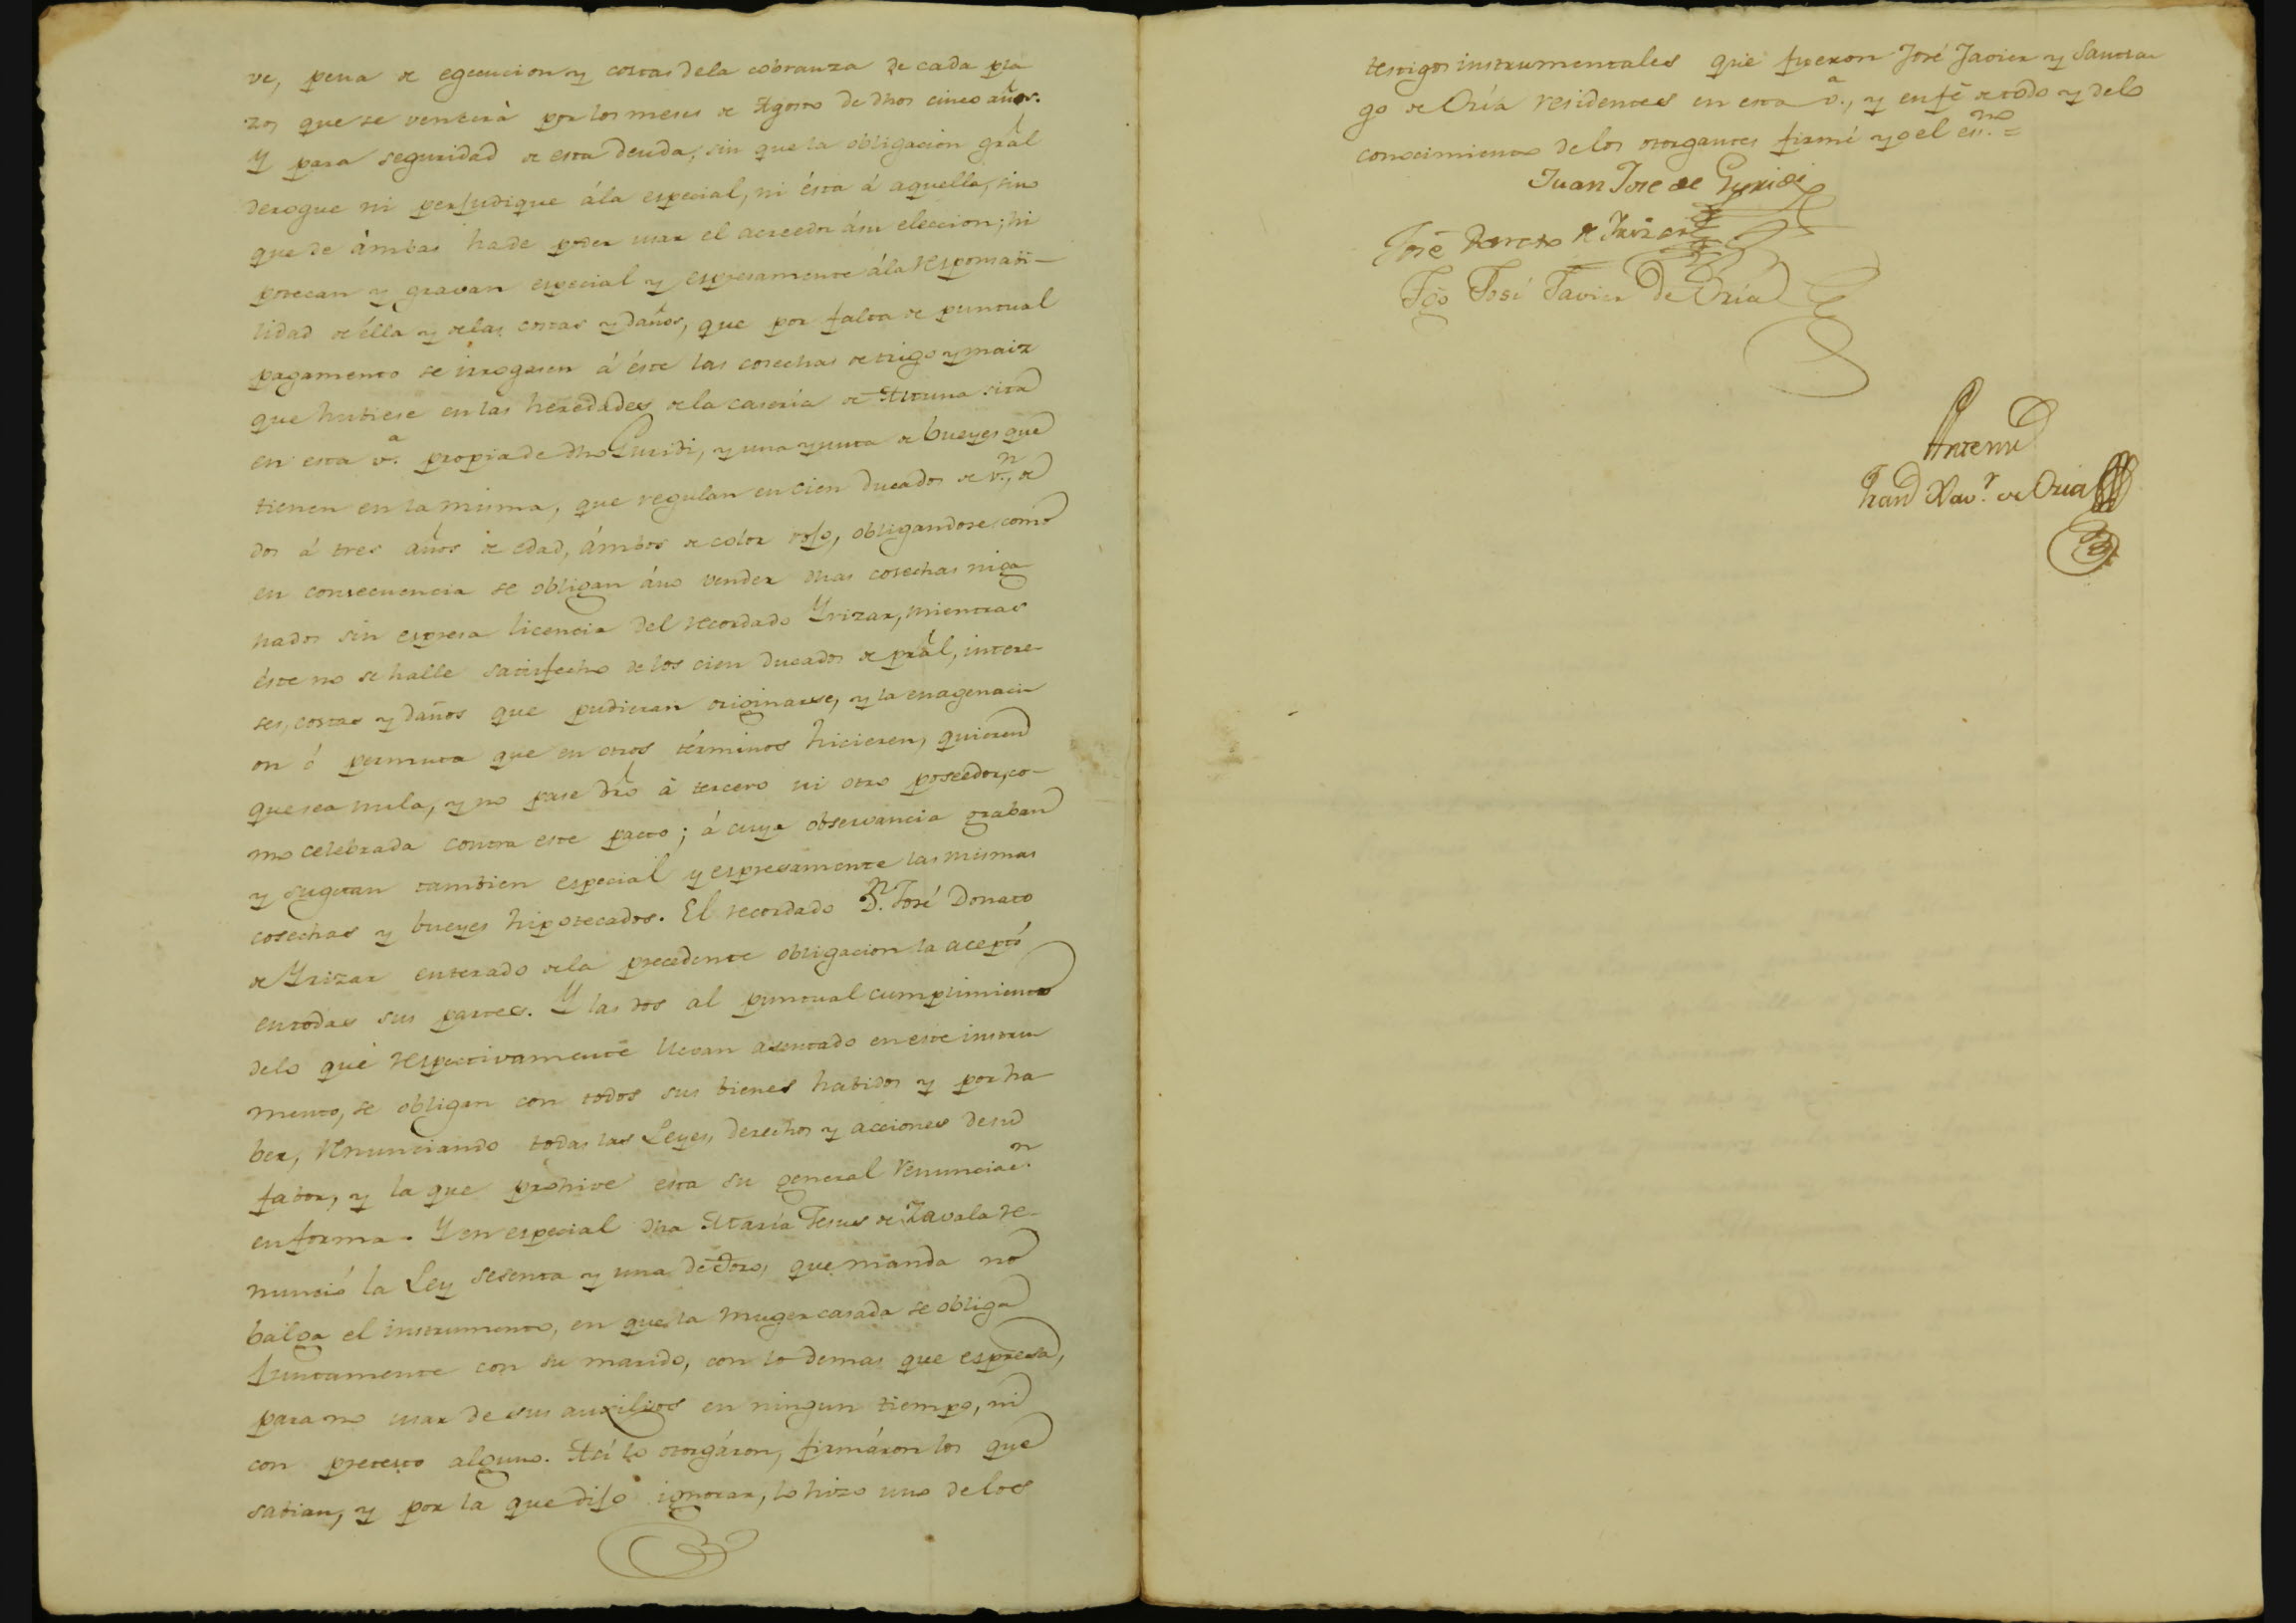 ve, pena de egecucion y costas dela cobranza de cada pla
zos que se vencerà por los meses de Agosto de dhos cinco años.
Y para seguridad de esta deuda, sin que la obligacion gral
derogue ni perjudique ála especial, ni ésta á aquella, sino
que de ámbas hade poder usar el acreedor ásu eleccion; hi
potecan y gravan especial y espresamente ála responsabi-
lidad de élla y delas costas y daños, que por falta de puntual
pagamento se irrogasen á éste las cosechas de trigo y maiz
que hubiese en las heredades dela casería de Altuna sita
en esta v.ª propia de dho Guridi, y una yunta de bueyes que
tienen en la misma, que regulan en cien ducados de v.n, de
dos á tres años de edad, ámbos de color rojo, obligandose como
en consecuencia se obligan áno vender dhas cosechas niga
nados sin espresa licencia del recordado Yrizar, mientras
éste no se halle satisfecho de los cien ducados de pral, intere-
ses, costas y daños que pudieran originarse, y la enagenaci
on ó permuta que en otros términos hicieren, quieren
que sea nula, y no pase dro á tercero ni otro poseedor, co-
mo celebrada contra este pacto; á cuya observancia graban
y sugetan tambien especial y espresamente las mismas
cosechas y bueyes hipotecados. El recordado D.n José Donato
de Yrizar enterado dela precedente obligacion la aceptó
entodas sus partes. Y las dos al puntual cumplimiento
delo que respectivamente llevan asentado en este instru
mento, se obligan con todos sus bienes habidos y por ha
ber, renunciando todas las Leyes, derechos y acciones de su
fabor, y la que prohive esta su general renunciac.n
en forma. Y en especial dha María Jesus de Zavala re-
nunció la Ley sesenta y una de Toro, que manda no
balga el instrumento, en que la muger casada se obliga
juntamente con su marido, con lo demas que espresa,
para no usar de sus auxilios en ningun tiempo, ni
con pretesto alguno. Así lo otorgáron, firmáron los que
sabian, y por la que dijo ignorar, lo hizo uno de los
testigos instrumentales que fueron José Javier y Santia
go de Oría residentes en esta v.ª, y en fé de todo y delo
conocimiento de los otorgantes firmé yo el es.no =
Juan Jose de Guridi
José Donato de Irizar
Tgo José Javier De Oría
Antemi
Xav.r de Oria